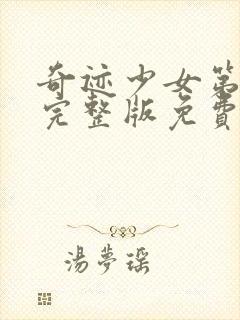 奇迹少女第
完整版免費
湯夢瑶